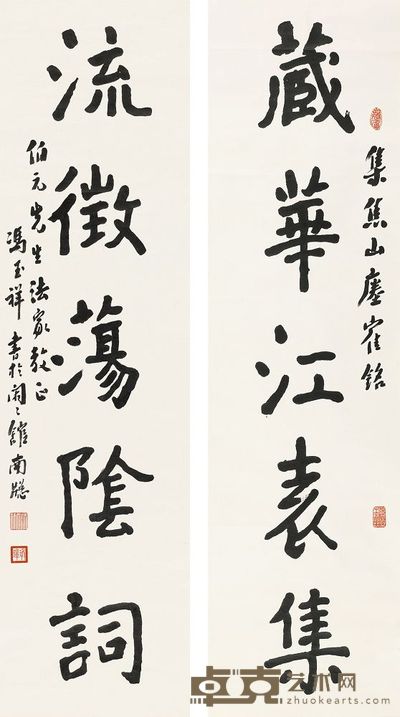 藏華江表集
集焦山瘞隺銘
流徵蕩陰詞
伯元先生法家教正
馮玉祥書於閒〻館南牕
卓克艺术网
zhuokearts.com